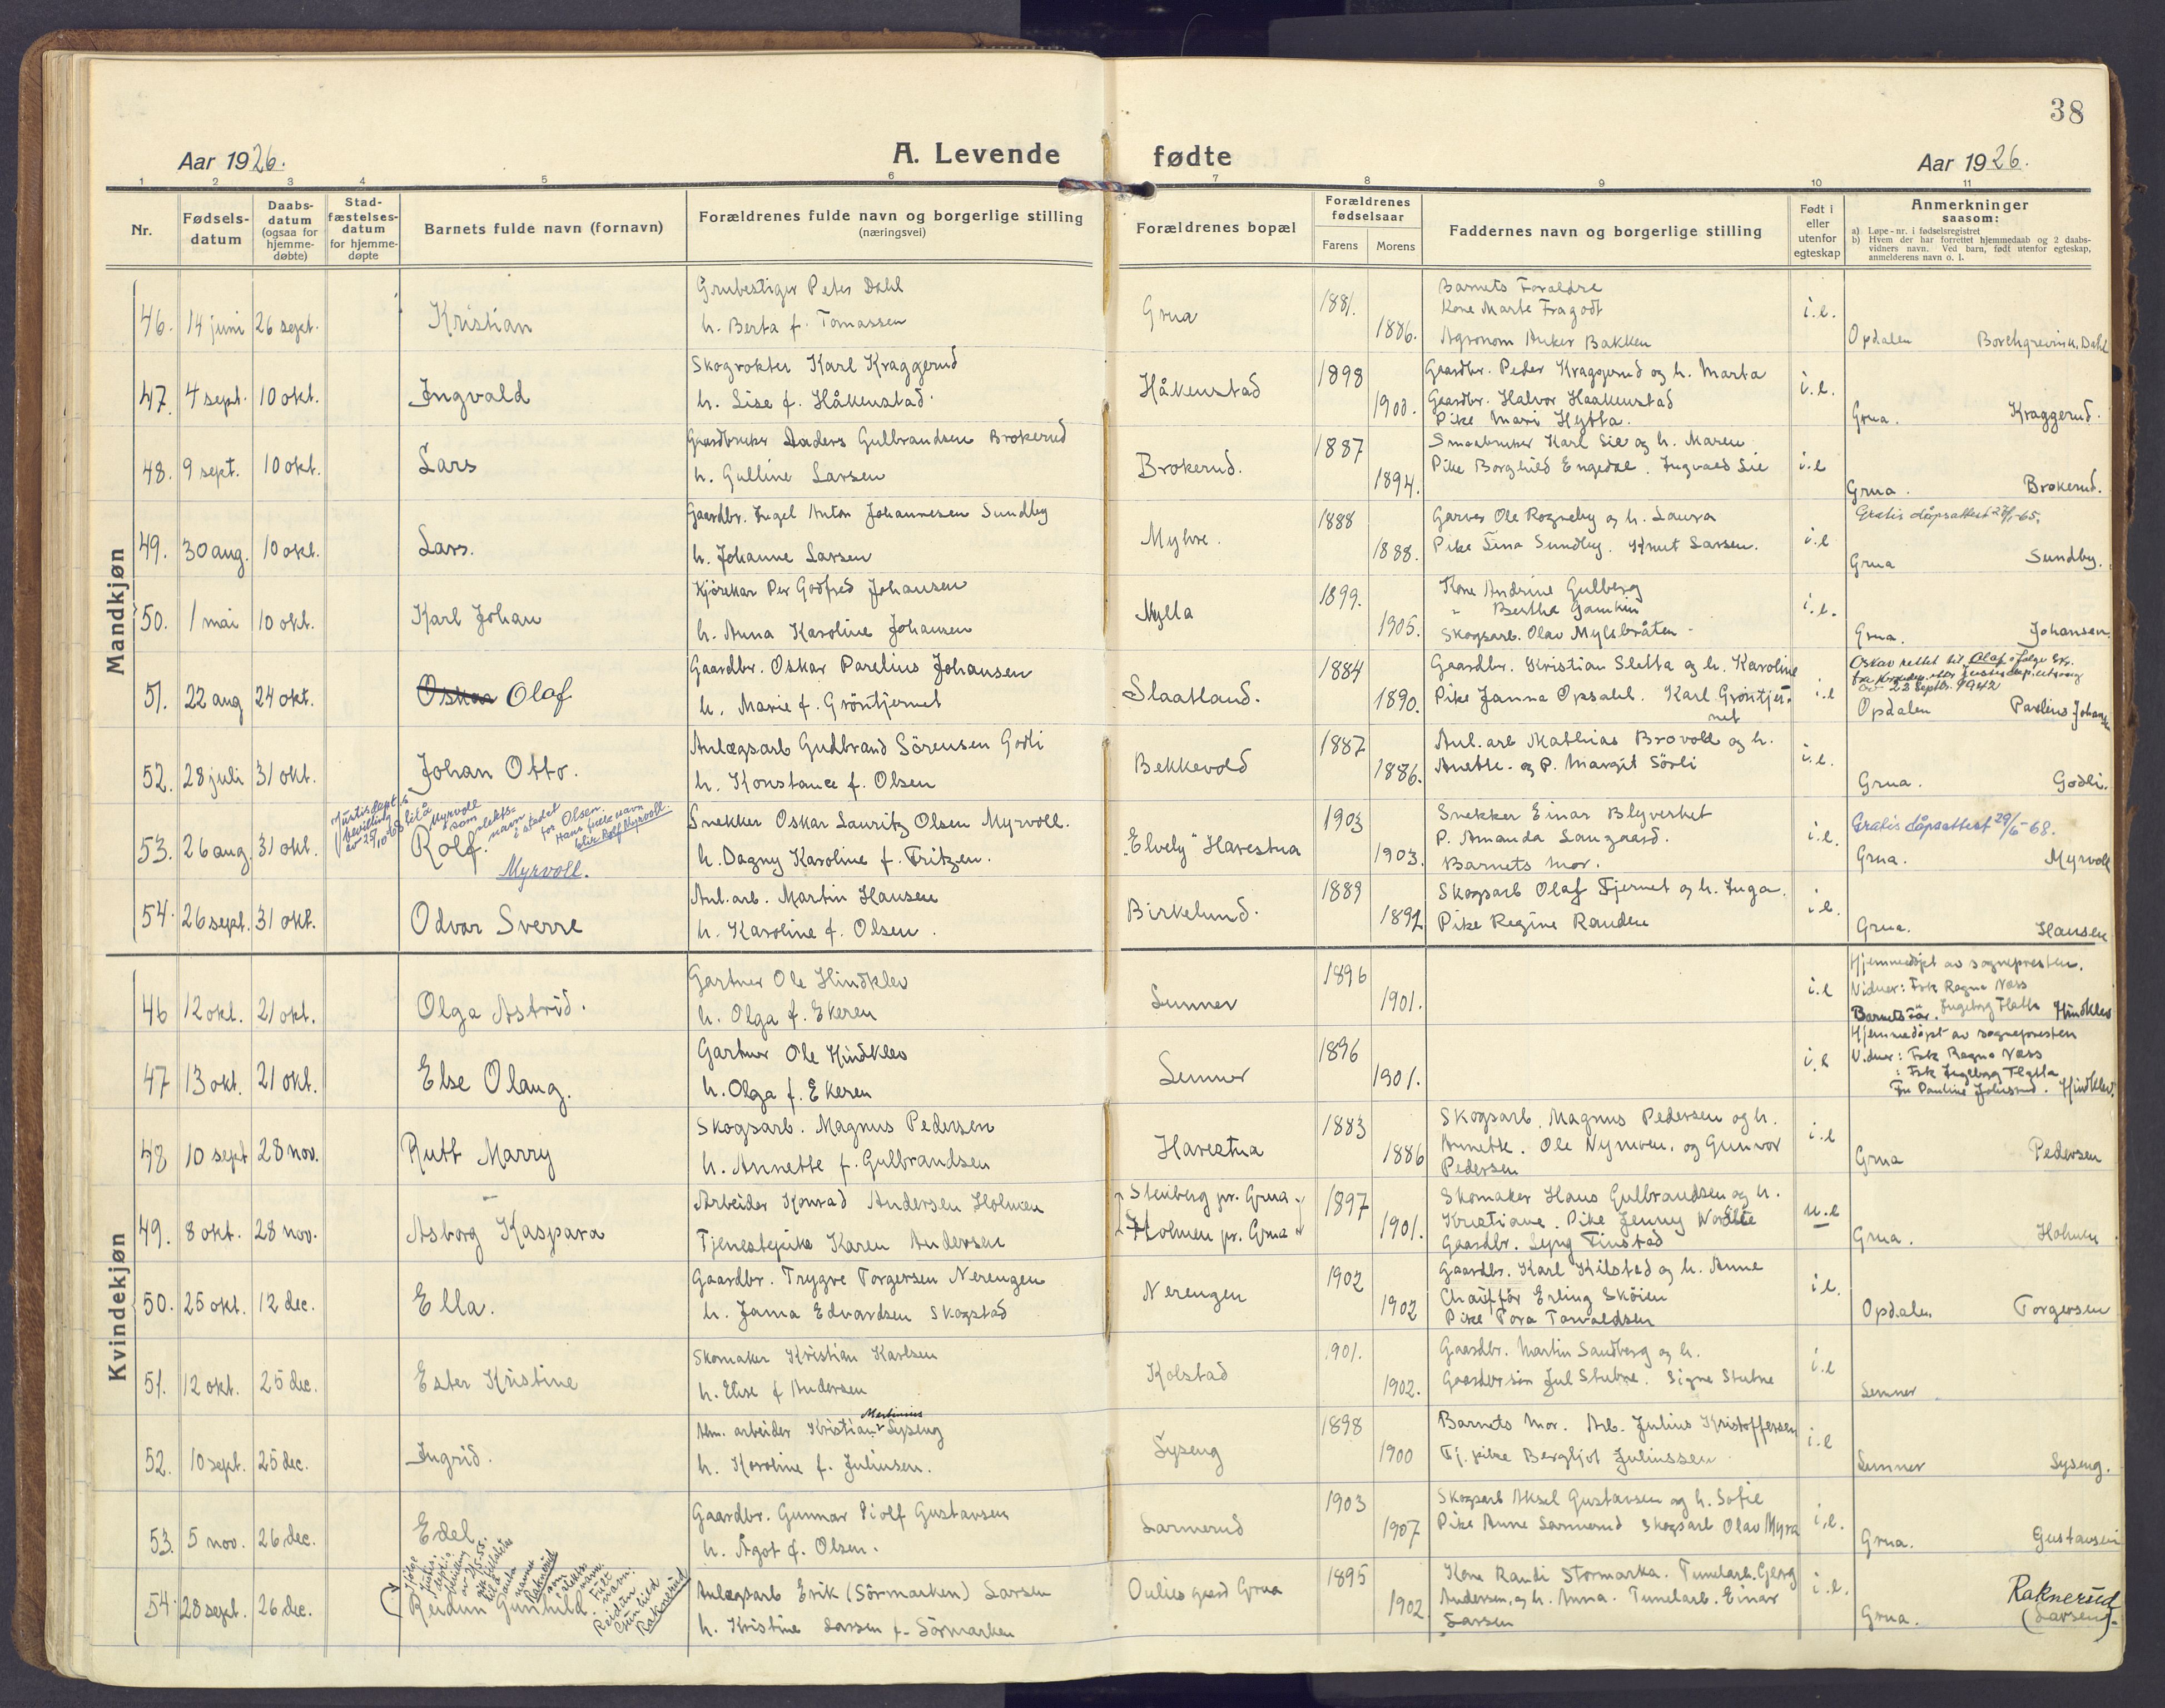 38
Aar 1926.
A. Levende fødte
Aar 1926.
1 2 3 4 5 6 7 8 9 10 11
Nr.
Fødsels-
datum
Daabs-
datum
(ogsaa for
hjemme-
døbte)
Stad-
fæstelses-
datum
for hjemme-
døpte
Barnets fulde navn (fornavn)
Forældrenes fulde navn og borgerlige stilling
(næringsvei)
Forældrenes bopæl
Forældrenes
fødselsaar
Farens
Morens
Faddernes navn og borgerlige stilling
Født i
eller
utenfor
egteskap
Anmerkninger
saasom:
a) Løpe-nr. i fødselsregistret
b) Hvem der har forrettet hjemmedaab og 2 daabs-
vidners navn. Ved barn, født utenfor egteskap,
anmelderens navn o. l.
Mandkjøn
46. 14 juni 26 sept. Kristian
Grubestiger Peter Dahl
h. Berta f. Tomassen
Grua
1881.
1886.
Barnets Forældre
Kone Marte Fragodt
Agronom Anker Bakken
i.e.
Opdalen Borchgrevink, Dahl
47. 4 sept. 10 okt. Ingvald
Skogvokter Karl Kraggerud
h. Lise f. Håkenstad
Håkenstad
1898
1900.
Gaardbr. Peder Kraggerud og h. Marta
Gaardbr. Halvor Haakenstad
Pike Mari Hytta.
i.e.
Grua. Kraggerud.
48. 9 sept. 10 okt. Lars
Gaardbruker Anders Gulbrandsen Brokerud
h. Gulline Larsen
Brokerud.
1887
1894.
Smaabruker Karl Lie og h. Maren
Pike Borghild Engedal. Ingvald Lie
i.e
Grua. Brokerud.
49. 30 aug. 10 okt. Lars.
Gaardbr. Ingel Anton Johannesen Sundby
h. Johanne Larsen
Myhre.
1888
1888.
Garver Ole Rogneby og h. Laura
Pike Lina Sundby. Knut Larsen.
i.e
Gratis dåpsattest -65.
Grua Sundby.
50. 1 mai 10 okt. Karl Johan
Kjörekar Per Godfred Johansen
h. Anna Karoline Johansen
Mylla
1899.
1905.
Kone Andrine Gulberg
" Bertha Gamkin
Skogsarb. Olav Mylsbråten
i.e.
Grua. Johansen.
51. 22 aug 24 okt. Oskar Olaf
Gaardbr. Oskar Parelius Johansen
h. Marie f. Gröntjernet
Slaatland.
1884
1890.
Gaardbr. Kristian Sletta og h. Karoline
Pike Janna Opsahl. Karl Gröntjer-
net
i.e
Oskar rettet til Olaf ifølge skr.
av 22 septbr. 1942
Opdalen Parelius Johansen
52. 28 juli 31 okt. Johan Otto.
Anlægsarb Gudbrand Sörensen Godli
h. Konstance f. Olsen
Bekkevold
1887
1886.
Anl. arb Mathias Brovoll og h.
Anette. og P. Margit Sörli
i.e.
Grua. Godli.
53. 26 aug. 31 okt. Rolf.
Justisdept.s
bevilling
av 25/10-68 til å
Myrvoll
som slekts-
navn
i stedet
for Olsen.
Hans fulle navn
blir Rolf Myrvoll.
Myrvoll.
Snekker Oskar Lauritz Olsen Myrvoll.
h. Dagny Karoline f. Fritzen.
"Elvely" Harestua
1903
1903.
Snekker Einar Blyverket
P. Amanda Langaard.
Barnets mor.
i.e.
Gratis dåpsattest 29/5-68.
Grua. Myrvoll
54. 26 sept. 31 okt. Odvar Sverre
Anl. arb. Martin Hansen
h. Karoline f. Olsen.
Birkelund.
1889
1892
Skogsarb Olaf Tjernet og h. Inga.
Pike Regine Randen
i.e.
Grua. Hansen
Kvindekjøn
46 12 okt. 21 okt. Olga Astrid.
Gartner Ole Hindklev
h. Olga f. Ekeren
Lunner
1896
1901.
i.e
Hjemmedöpt av sognepresten.
Vidner: Frk Ragna Næss
Barnets far. Ingeborg Flatla Hindklev
47 13 okt. 21 okt. Else Olaug.
Gartner Ole Hindklev
h. Olga f. Ekeren
Lunner
1896
1901.
i.e
Hjemmedöpt av sognepresten
Vidner: Frk Ragna Næss
: Frk Ingeborg Flatla
Fru Pauline Johnsrud. Hindklev.
48 10 sept 28 nov. Rutt Marry
Skogsarb. Magnus Pedersen
h. Annette f. Gulbrandsen
Harestua
1883
1886
Skogsarb. Magnus Pedersen og h.
Annette. Ole Nymoen. og Gunvor
Pedersen
i.e
Grua Pedersen
49. 8 okt. 28 nov. Asborg Kaspara
Arbeider Konrad Andersen Holmen
Tjenestepike Karen Andersen
Stenberg pr. Grua
Holmen pr. Grua
1897
1901.
Skomaker Hans Gulbrandsen og h.
Kristiane. Pike Jenny
Gaardbr. Tinstad
u.e
Grua. Holmen
50. 25 okt. 12 dec. Ella.
Gaardbr. Trygve Torgersen Nerengen
h. Janna Edvardsen Skogstad
Nerengen
1902
1902
Gaardbr. Karl Kilstad og h. Anne
Chaufför Erling Sköien
Pike Tora Torvaldsen
i.e.
Opdalen Torgersen
51. 12 okt. 25 dec. Ester Kristine
Skomaker Kristian Karlsen
h. Elise f Andersen
Kolstad
1901.
1902.
Gaardbr. Martin Sandberg og h.
Gaardbr sön Jul Stubne. Signe Stubne
i.e
Lunner
52. 10 sept. 25 dec. Ingrid.
Martinius
Alm. arbeider Kristian Lyseng
h. Karoline f. Juliusen.
Lyseng
1898
1900
Barnets mor. Arb. Julius Kristoffersen
Tj. pike Bergljot Juliussen
i.e
Lunner Lyseng.
53. 5 nov. 26 dec. Edel
Gaardbr. Gunnar Eiolf Gustavsen
h. Ågot f. Olsen.
Larmerud
1903
1907
Skogsarb Aksel Gustavsen og h. Sofie
Pike Anne Larmerud Skogsarb Olav Myra
i.e.
Grua. Gustavsen
54. 28 sept. 26 dec. Reidun Gunhild.
Raknerud
som
slekts
navn.
Fullt
navn:
Reidun
Gunhild
Raknerud
Anlægsarb Erik (Sörmarken) Larsen
h. Kristine Larsen f. Sörmarken
Oulies gaard Grua
1895
1902.
Kone Randi Stormarka. Tunelarb. Georg
Andersen, og h. Anna. Tunelarb. Einar
Larsen
i.e.
Grua. Raknerud
(Larsen).